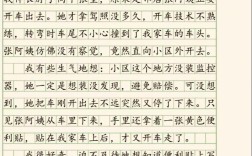 开车出去。她才拿驾照没多久，开车技术不熟
练，转弯时车尾不小心撞到了我家车的车头。
张阿姨仿佛没有察觉，竟然直向小区外开去。
我有些生气地想：小区这个地方没装监
控，她一定是想装没发现，避免赔偿。可没想
到，她把车刚开出去不远突然又停了下来。只
见张阿姨从车里下来，手里还拿着一张黄色便
利贴，贴在我家车上后，才又开车走了。